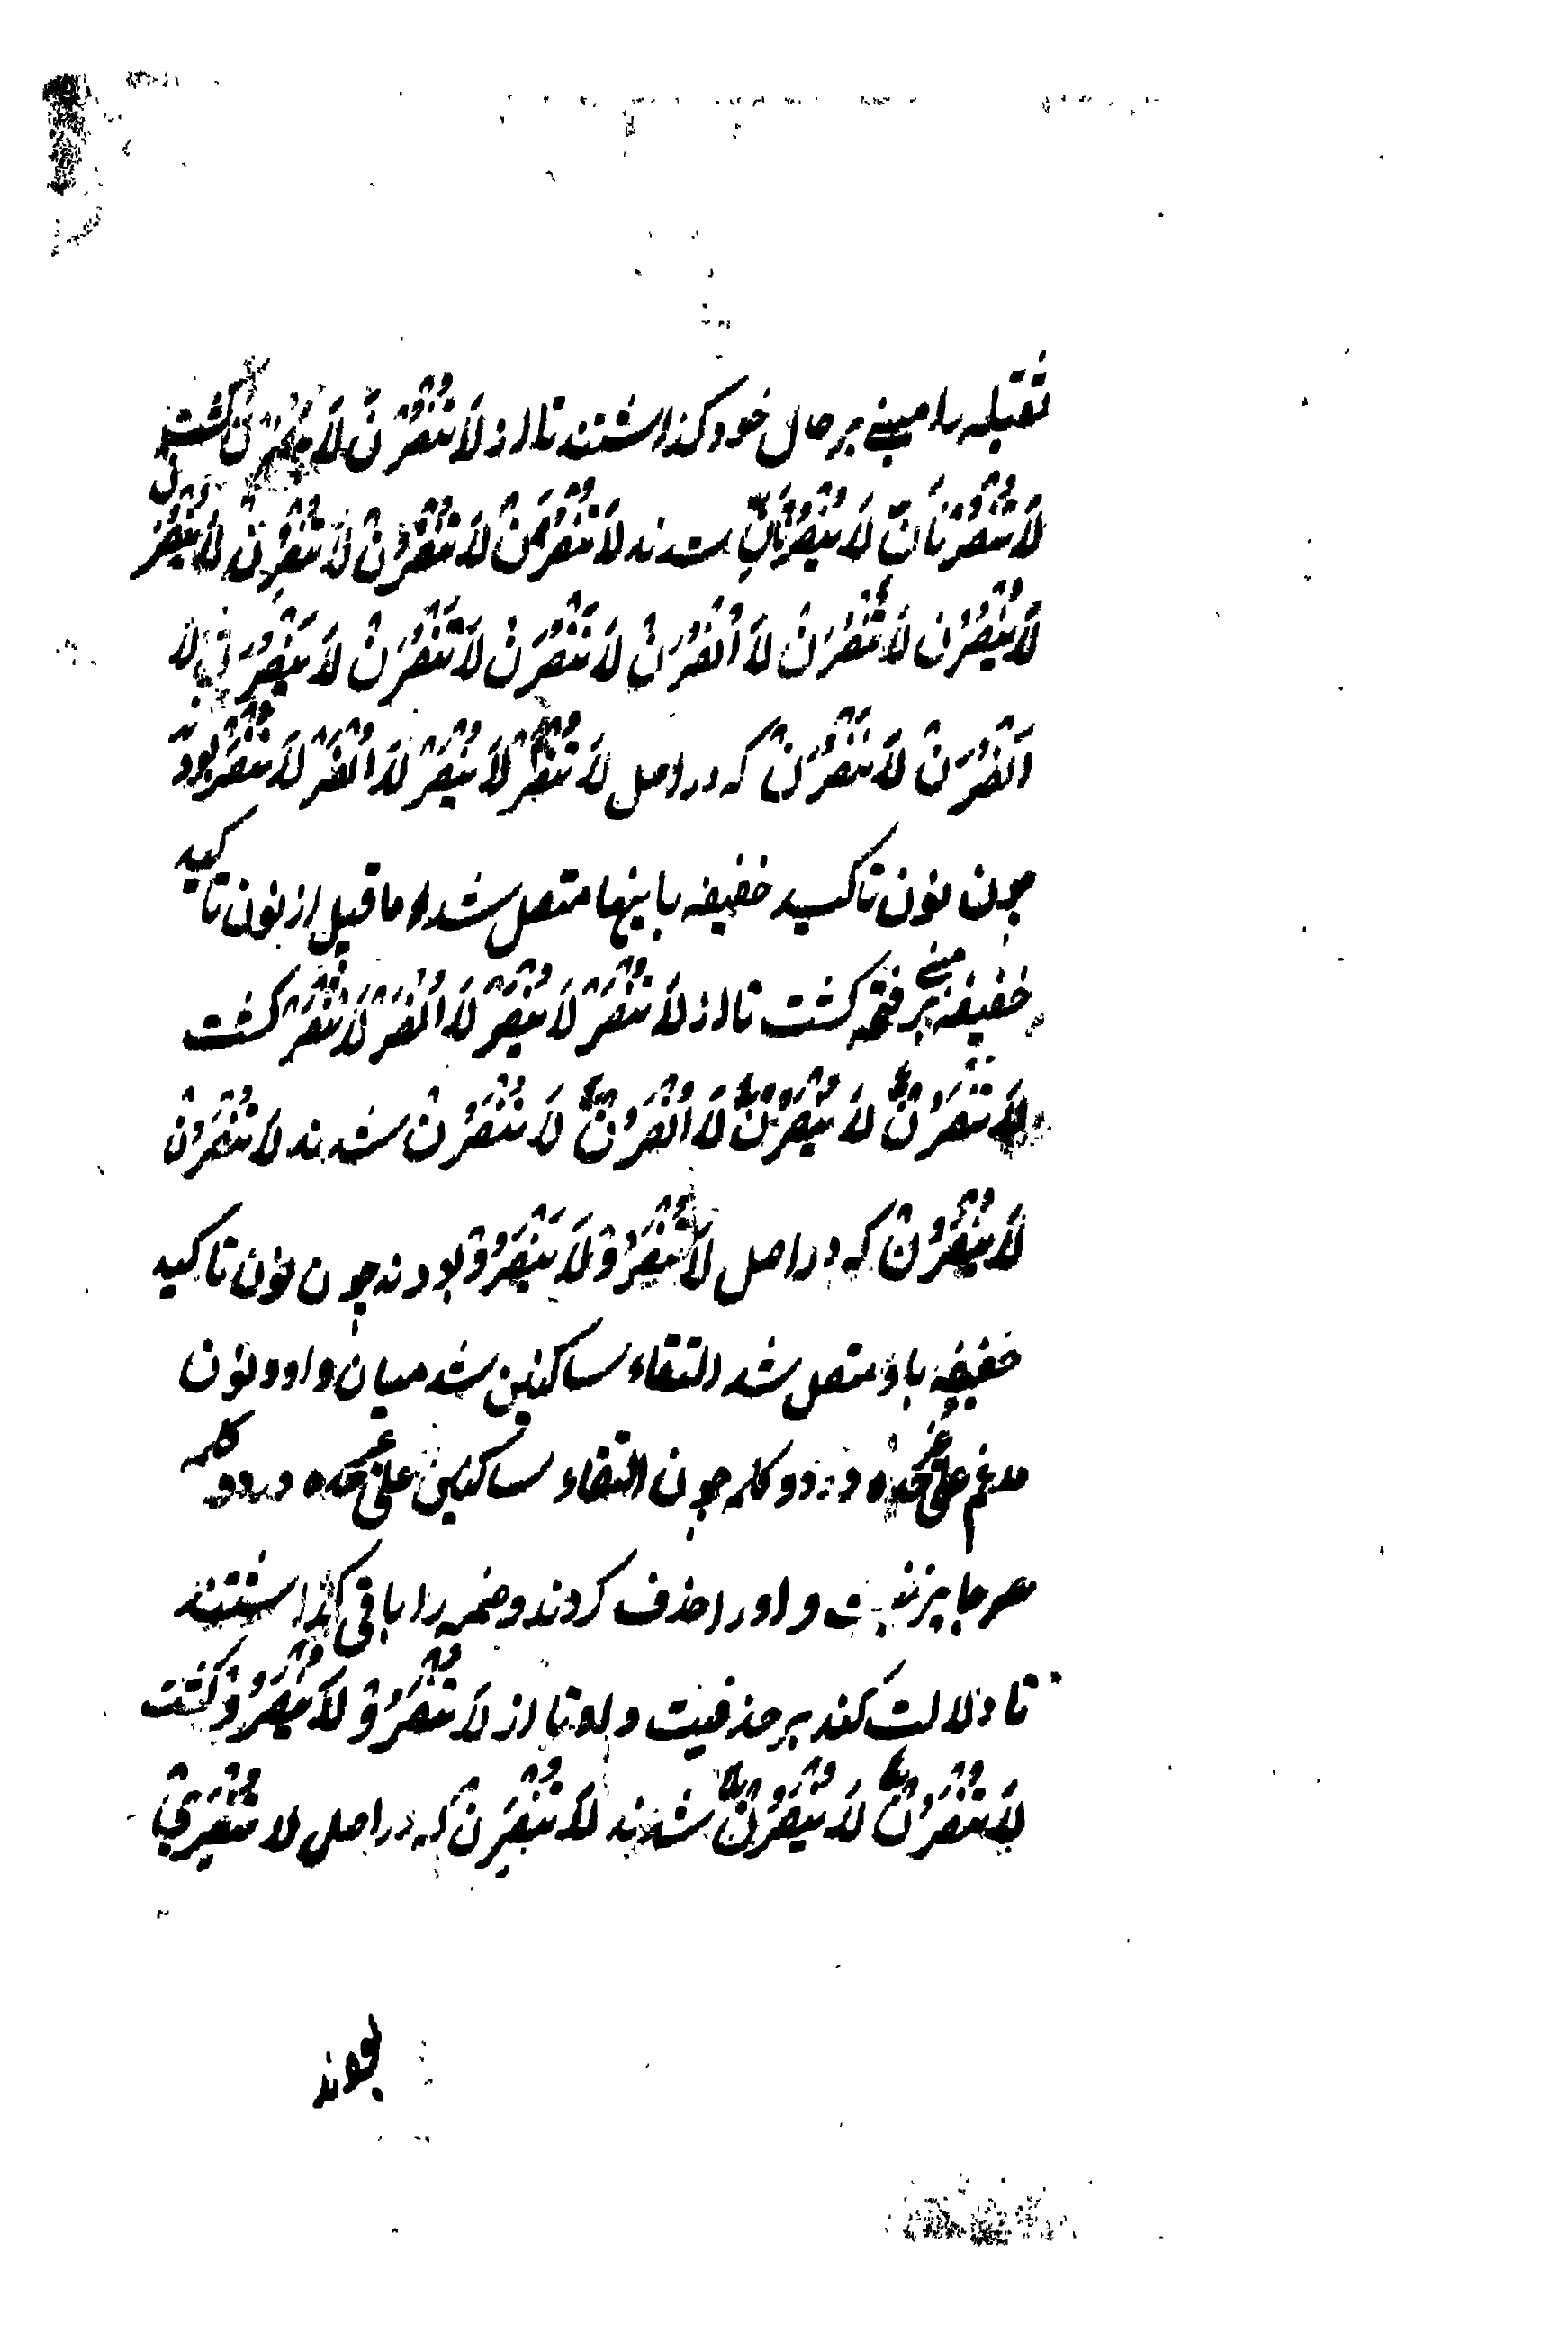 ثقیله را مبنی بر حال خود گذاشتند تا از لَا تُنْصَرْنَ لَا یُنْصَرْنَ گشت
لَا تُنْصَرْنَانِّ لَا یُنْصَرْنَانِّ شدند لَا تُنْصَرَنْ لَا تُنْصَرُنْ لَا تُنْصَرِنْ لَا یُنْصَرَنْ
لَا یُنْصَرُنْ لَا تُنْصَرَنْ لَا اُنْصَرَنْ لَا نُنْصَرَنْ لَا تَنْصُرَنْ لَا یَنْصُرَنْ لَا
اَنْصُرَنْ لَا نَنْصُرَنْ که در اصل لَا تُنْصَرْ لَا یُنْصَرْ لَا اُنْصَرْ لَا نُنْصَرْ بود
چون نون تاکید خفیفه باینها متصل شد ماقبل از نون تاکید
خفیفه مبنی بر فتحه گشت تا از لَا تُنْصَرْ لَا یُنْصَرْ لَا اُنْصَرْ لَا نُنْصَرْ گشت
لَا تُنْصَرَنْ لَا یُنْصَرَنْ لَا اُنْصَرَنْ لَا نُنْصَرَنْ شدند لَا تُنْصَرُنْ
لَا یُنْصَرُنْ که در اصل لَا تُنْصَرُوْ لَا یُنْصَرُوْ بودند چون نون تاکید
خفیفه باو متصل شد التقاء ساکنین شد میان واو و نون
مدغم علی غیر حده در دو کلمه چون التقاء ساکنین علی غیر حده در دو کلمه
جایز نیست واو را حذف کردند و ضمه را باقی گذاشتند
تا دلالت کند بر حذفیت واو تا از لَا تُنْصَرُوْ لَا یُنْصَرُوْ گشت
لَا تُنْصَرُنْ لَا یُنْصَرُنْ شدند لَا تُنْصَرِنْ که در اصل لا تُنْصَرِیْ
بودند